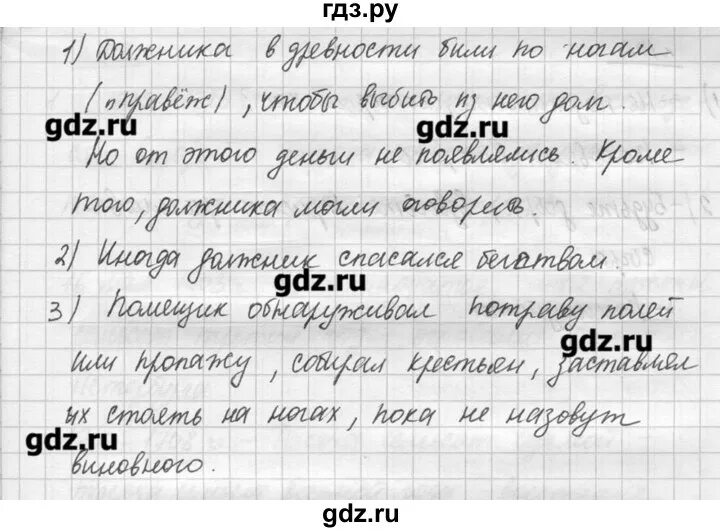 гдз.ру
1) Должника в древности били по ногам
(правёж), чтобы выбить из него долг.
gdz.ru gdz.ru
Но от этого деньги не появлялись. Кроме
того, должника могли оговорить.
2) Иногда должник спасался бегством
gdz.ru
3) Помещик обнаруживал потраву полей
gdz.ru
или пропажу, собирал крестьян, заставлял
их стоять на ногах, пока не назовут
gdz.ru
виновного.
gdz.ru